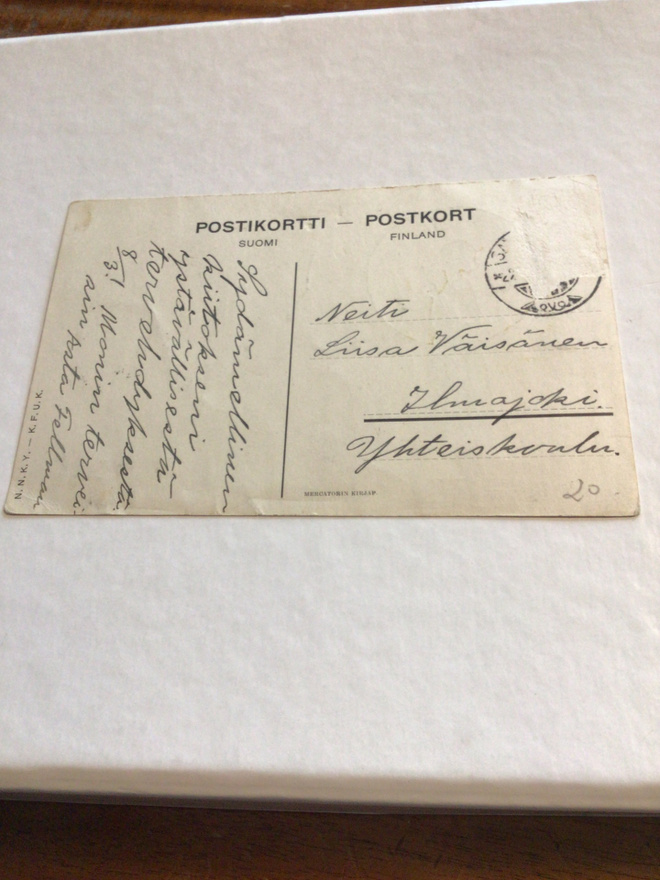 POSTIKORTTI — POSTKORT
SUOMI FINLAND
Sydämellinen
kiitokseni
ystävällisestä
tervehdyksestä
8/3. Monin tervei-
sin Asta Fellman
Neiti
Liisa Väisänen
Ilmajoki.
Yhteiskoulu.
N.N.K.Y. — K.F.U.K.
MERCATORIN KIRJAP.
20